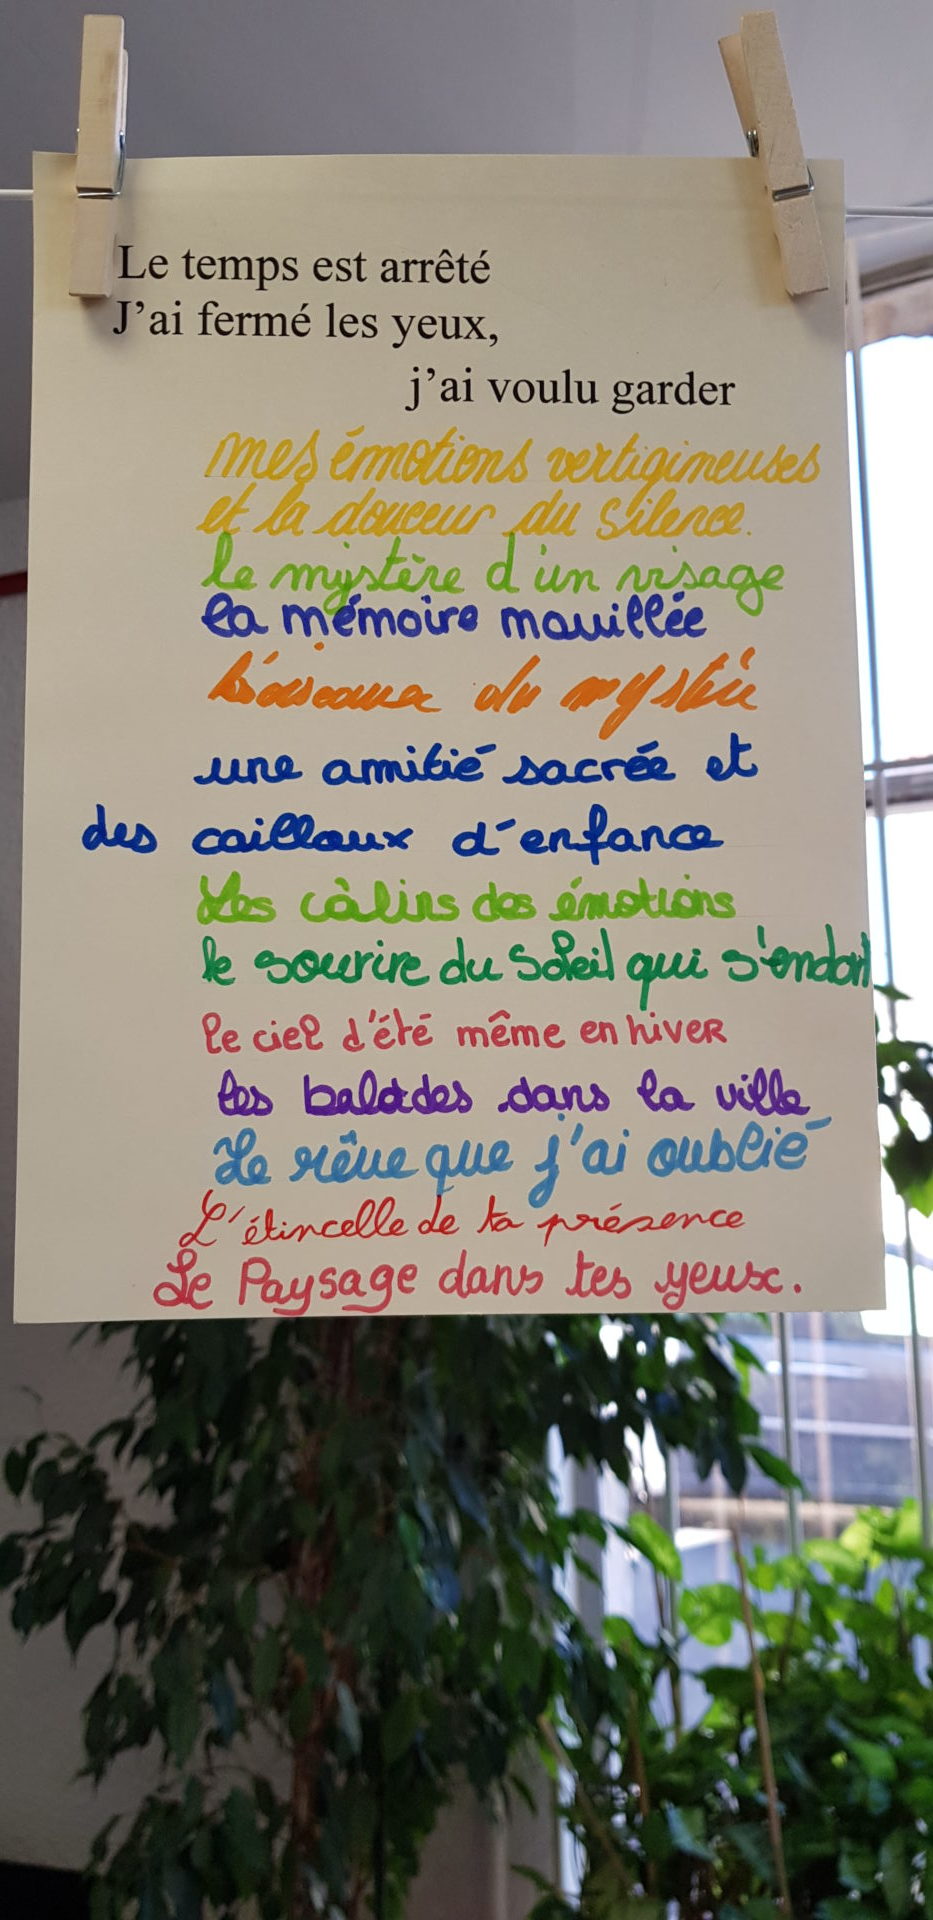 Le temps est arrêté
J'ai fermé les yeux,
j'ai voulu garder
mes émotions vertigineuses
et la douceur du silence.
le mystère d'un visage
la mémoire mouillée
du
une amitié sacrée et
des cailloux d'enfance
Les càlins des émotions
le sourire du Soleil qui s'endort
le ciel d'été même en hiver
les balades dans la ville
Le rêve que j'ai oublié
L'étincelle de ta présence
Le Paysage dans tes yeux.